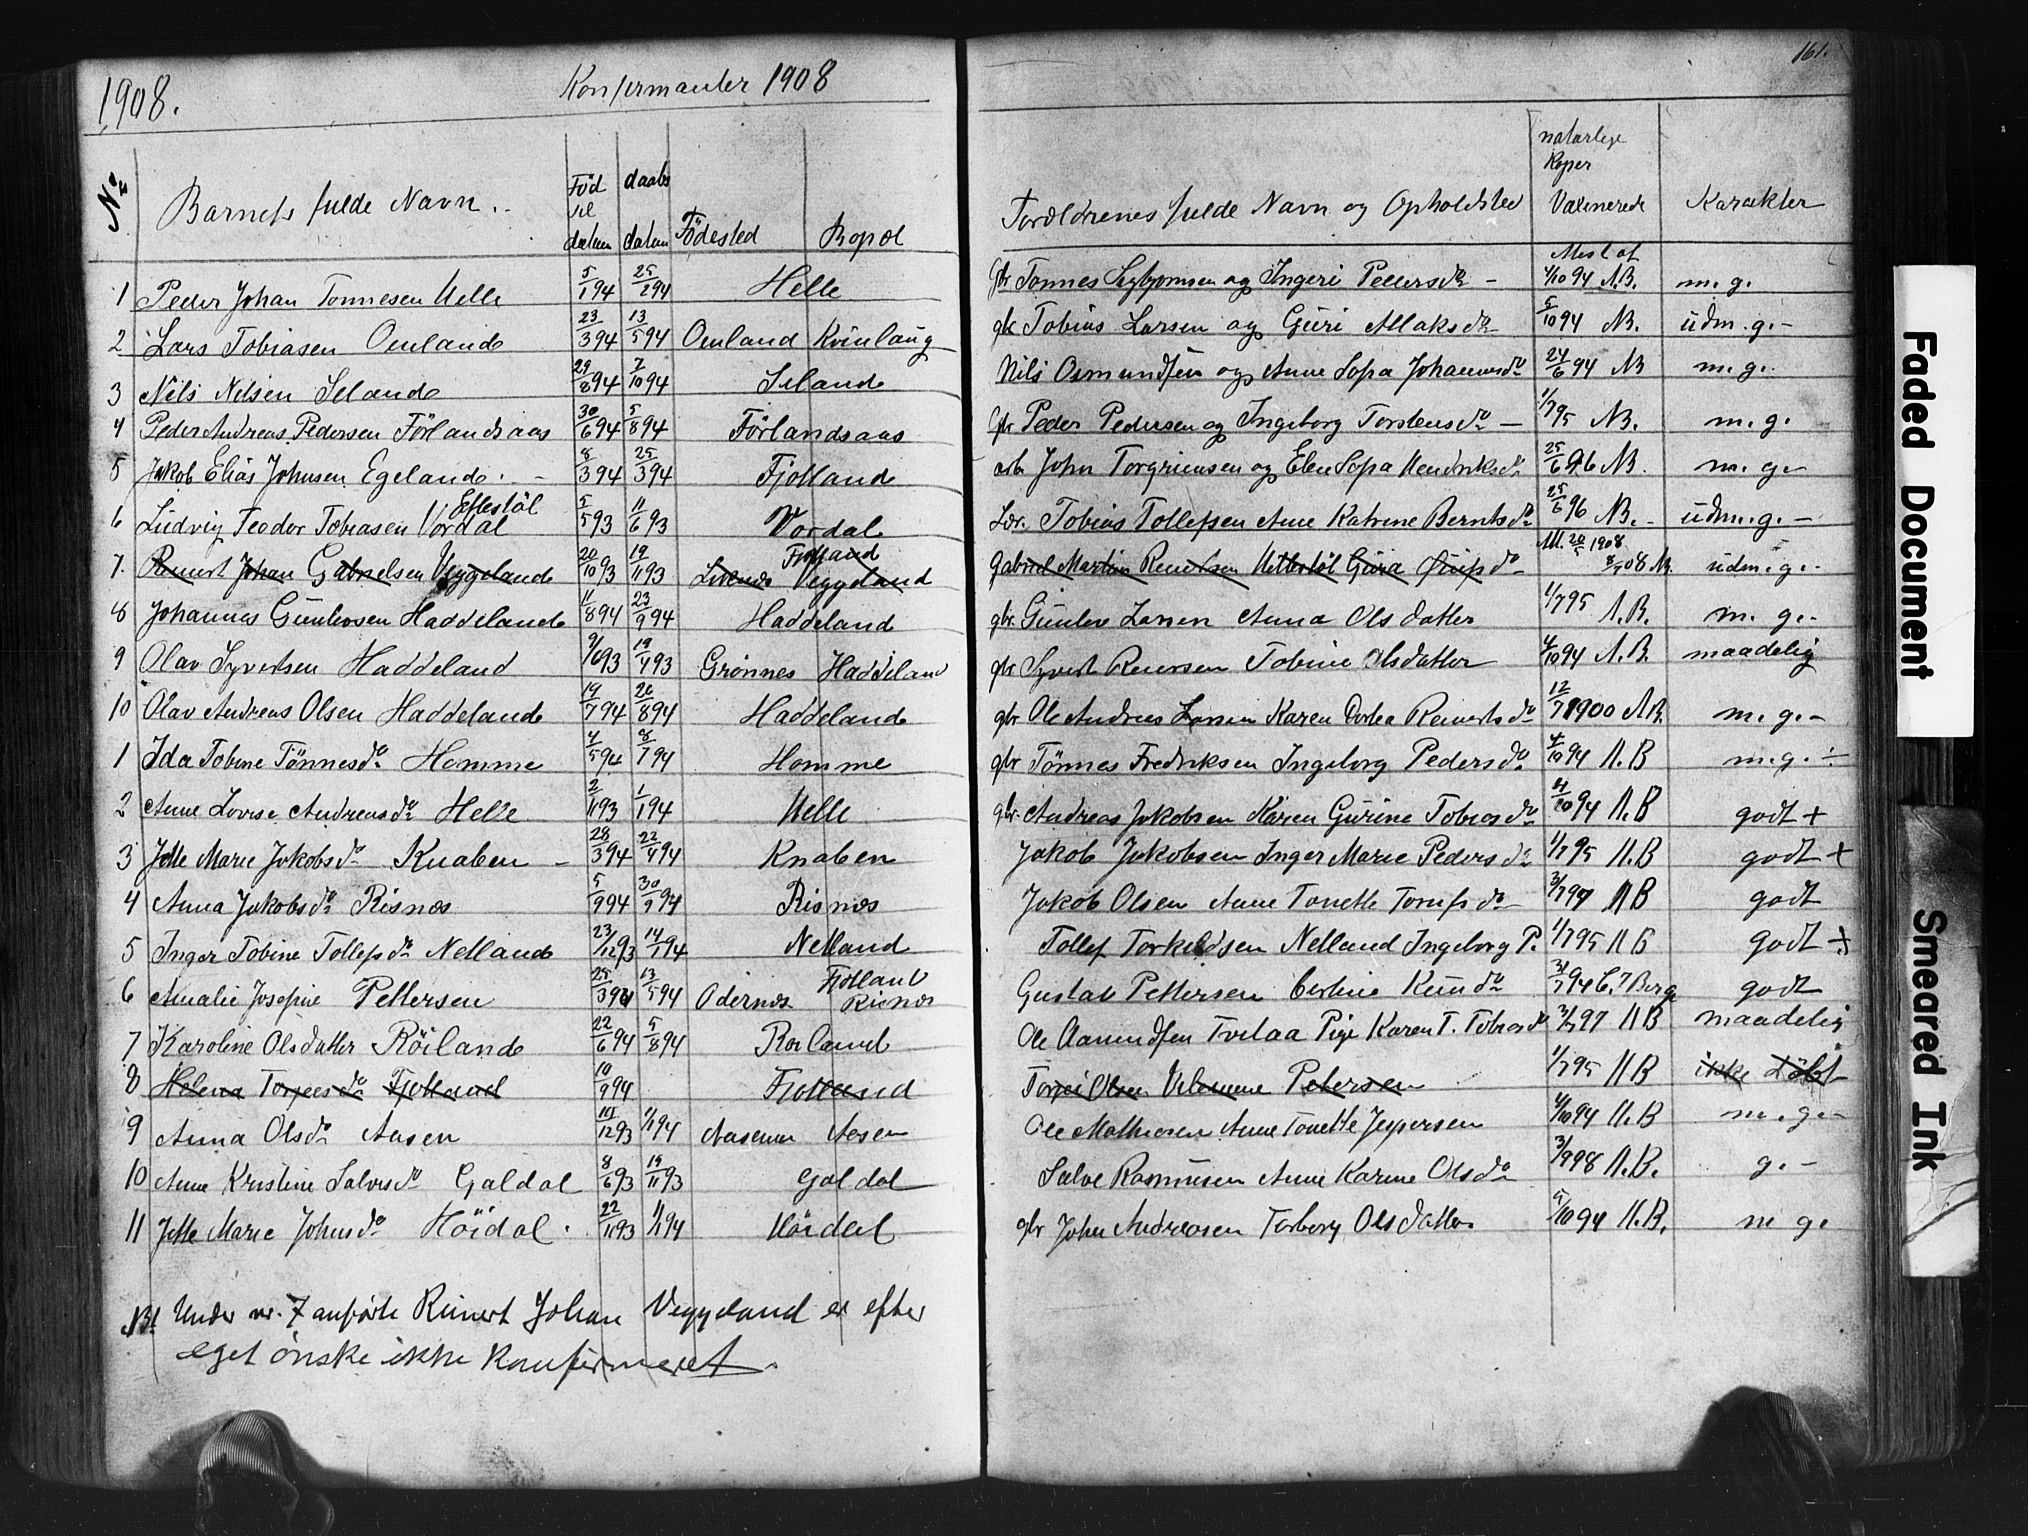 1908.
Konfirmanter 1908
161.
No
Barnets fulde Navn.
Föd sel datum
daabs datum
Födested
Bopæl
Forældrenes fulde Navn og Opholdsted
naturlige Koper Vaxinerede
Karakter
1 Peder Johan Tonnesen Helle 5/1 94 25/2 94 Helle gbr Tonnes og Ingeri Pedersdr - Attest af 4/10 94 N.B. m. g.
2 Lars Tobiasen Omland 23/3 94 13/5 94 Omland Kvinlaug gbr Tobias Larsen og Guri Aslaksdr 5/10 94 NB. udm. g. -
3 Nils Nilsen Seland 29/8 94 7/10 94 Seland Nils Osmundsen og Anne Sofa Johannesdr 24/6 94 NB m. g.
4 Peder Andreas Pedersen Förlandsaas 30/6 94 5/8 94 Förlandsaas gbr Peder Pedersen og Ingeborg Torstensdr - 1/7 95 NB. m. g.
5 Jakob Elias Johnsen Egeland 8/3 94 25/3 94 Fjotland arb. John Torgrimsen og Elen Sofa Hendriksdr 25/6 96 NB. m. g -
Eftestöl
6 Ludvig Teodor Tobiasen Vordal 5/5 93 11/6 93 Vordal Lær. Tobias Tollefsen Anne Katrine Berntsdr 25/6 96 NB. - udm. g. -
Fjotland
7. Reinert Johan Gabrielsen Veggeland 20/10 93 19/11 93 Veggeland Gabriel Martin Reinertsen Guria dr Att. 20/5 1908 08 N. udm. g. -
8 Johannes Gunlevsen Haddeland 11/8 94 23/9 94 Haddeland gbr. Gunlev Larsen Anna Olsdatter 1/7 95 N.B. m. g. -
9 Olav Syvertsen Haddeland 9/6 93 19/11 93 Grönnes Haddeland gbr Syvert Reinersen Tobine Olsdatter 4/10 94 N.B. maadelig
10 Olav Andreas Olsen Haddeland 19/7 94 26/8 94 Haddeland gbr Ole Andreas Larsen Karen Dortea Reinertsdr 12/7 1900 NB. m. g. -
1 Ida Tobine Tönnesdr Homme 4/5 94 8/7 94 Homme gbr Tönnes Fredriksen Ingeborg Pedersdr 4/10 94 N.B m. g. ÷
2 Anne Lovise Andreasdr Helle 2/11 93 1/1 94 Helle gbr. Andreas Jakobsen Karen Gurine Tobiasdr 4/10 94 N.B godt +
3 Jette Marie Jakobsdr Knaben - 28/3 94 22/4 94 Knaben Jakob Jakobsen Inger Marie Pedersdr 1/7 95 N.B godt +
4 Anna Jakobsdr Risnæs 5/9 94 30/9 94 Risnæs Jakob Olsen Anne Tonette dr - 3/7 97 NB godt
5 Inger Tobine Tollefsdr Netland 23/12 93 14/1 94 Netland Tollef Torkildsen Netland Ingeborg P. 1/7 95 NB godt +
6 Amalie Josefine Pettersen 25/3 94 13/5 94 Odernæs Fjotland Risnæs Gustab Pettersen Knudr 31/7 94 Berge godt
7 Karoline Olsdatter Röiland 22/6 94 5/8 94 Roiland Ole Aanensen Tvelaa Pige Karen T. Tobiasdr 3/7 97 NB maadelig
8 Helena Torjeesdr Fjotland 10/9 94 Fjotland Torjei Olsen Vilemine Petersen 1/7 95 NB ikke döbt
9 Anna Olsdr Aasen 10/12 93 1/1 94 Aasemer Aasen Ole Mathiasen Anne Tonette Jespersen 4/10 94 N.B m. g -
10 Anne Kristine Salvesdr Galdal 8/6 93 19/11 93 Galdal Salve Rasmusen Anne Karine Olsdr 3/9 98 N.B. g. -
11 Jette Marie Johnsdr Höidal . 22/11 93 1/1 94 Höidal gbr John Andreasen Torborg Olsdatter 5/10 94 N.B. m g.
NB! Under nr. 7 anförte Reinert Johan Veggeland er efter
eget önske ikke konfirmeret.
Faded Document
Smeared Ink